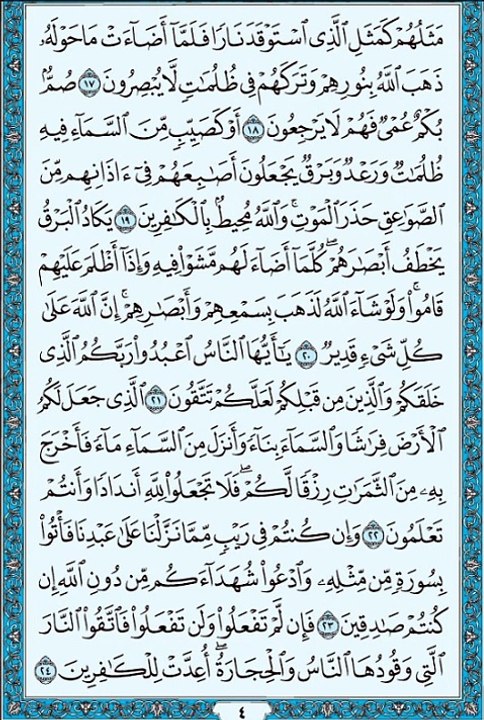 مَثَلُهُمْ كَمَثَلِ ٱلَّذِى ٱسْتَوْقَدَ نَارًا فَلَمَّآ أَضَآءَتْ مَا حَوْلَهُۥ
ذَهَبَ ٱللَّهُ بِنُورِهِمْ وَتَرَكَهُمْ فِى ظُلُمَٰتٍ لَّا يُبْصِرُونَ ١٧ صُمٌّۢ
بُكْمٌ عُمْىٌ فَهُمْ لَا يَرْجِعُونَ ١٨ أَوْ كَصَيِّبٍ مِّنَ ٱلسَّمَآءِ فِيهِ
ظُلُمَٰتٌ وَرَعْدٌ وَبَرْقٌ يَجْعَلُونَ أَصَٰبِعَهُمْ فِىٓ ءَاذَانِهِم مِّنَ
ٱلصَّوَٰعِقِ حَذَرَ ٱلْمَوْتِ ۚ وَٱللَّهُ مُحِيطٌۢ بِٱلْكَٰفِرِينَ ١٩ يَكَادُ ٱلْبَرْقُ
يَخْطَفُ أَبْصَٰرَهُمْ ۖ كُلَّمَآ أَضَآءَ لَهُم مَّشَوْا۟ فِيهِ وَإِذَآ أَظْلَمَ عَلَيْهِمْ
قَامُوا۟ ۚ وَلَوْ شَآءَ ٱللَّهُ لَذَهَبَ بِسَمْعِهِمْ وَأَبْصَٰرِهِمْ ۚ إِنَّ ٱللَّهَ عَلَىٰ
كُلِّ شَىْءٍ قَدِيرٌ ٢٠ يَٰٓأَيُّهَا ٱلنَّاسُ ٱعْبُدُوا۟ رَبَّكُمُ ٱلَّذِى
خَلَقَكُمْ وَٱلَّذِينَ مِن قَبْلِكُمْ لَعَلَّكُمْ تَتَّقُونَ ٢١ ٱلَّذِى جَعَلَ لَكُمُ
ٱلْأَرْضَ فِرَٰشًا وَٱلسَّمَآءَ بِنَآءً وَأَنزَلَ مِنَ ٱلسَّمَآءِ مَآءً فَأَخْرَجَ
بِهِۦ مِنَ ٱلثَّمَرَٰتِ رِزْقًا لَّكُمْ ۖ فَلَا تَجْعَلُوا۟ لِلَّهِ أَندَادًا وَأَنتُمْ
تَعْلَمُونَ ٢٢ وَإِن كُنتُمْ فِى رَيْبٍ مِّمَّا نَزَّلْنَا عَلَىٰ عَبْدِنَا فَأْتُوا۟
بِسُورَةٍ مِّن مِّثْلِهِۦ وَٱدْعُوا۟ شُهَدَآءَكُم مِّن دُونِ ٱللَّهِ إِن
كُنتُمْ صَٰدِقِينَ ٢٣ فَإِن لَّمْ تَفْعَلُوا۟ وَلَن تَفْعَلُوا۟ فَٱتَّقُوا۟ ٱلنَّارَ
ٱلَّتِى وَقُودُهَا ٱلنَّاسُ وَٱلْحِجَارَةُ ۖ أُعِدَّتْ لِلْكَٰفِرِينَ ٢٤
٤